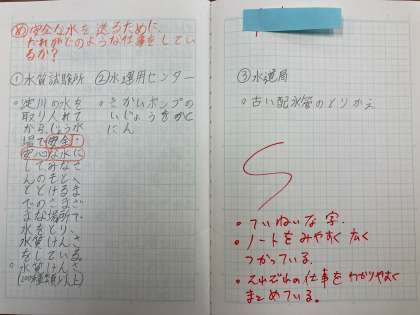 め 安全な水を送るために、
だれがどのような仕事をして
いるか？
①水質試験所
・淀川の水を
取り入れて
から、じょう水
場で安全・
安心な水に
してみなさ
んのもとへ
とどけるま
でのさまざ
まな場所で
水をとり、
水質けんさ
をしている。
。水質けんさ
②水運用センター
・きかいやポンプの
いじょうをかく
にん
③水道局
・古い配水管のとりかえ
・ていねいな字。
・ノートをみやすく広く
つかっている。
・それぞれの仕事をわかりやすく
まとめている。